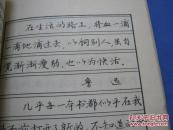 在生活的路上，将血一滴
一滴地滴过去，以饲别人，虽自
觉渐渐瘦弱，也以为快活。
鲁迅
几乎每一本书都似乎在我